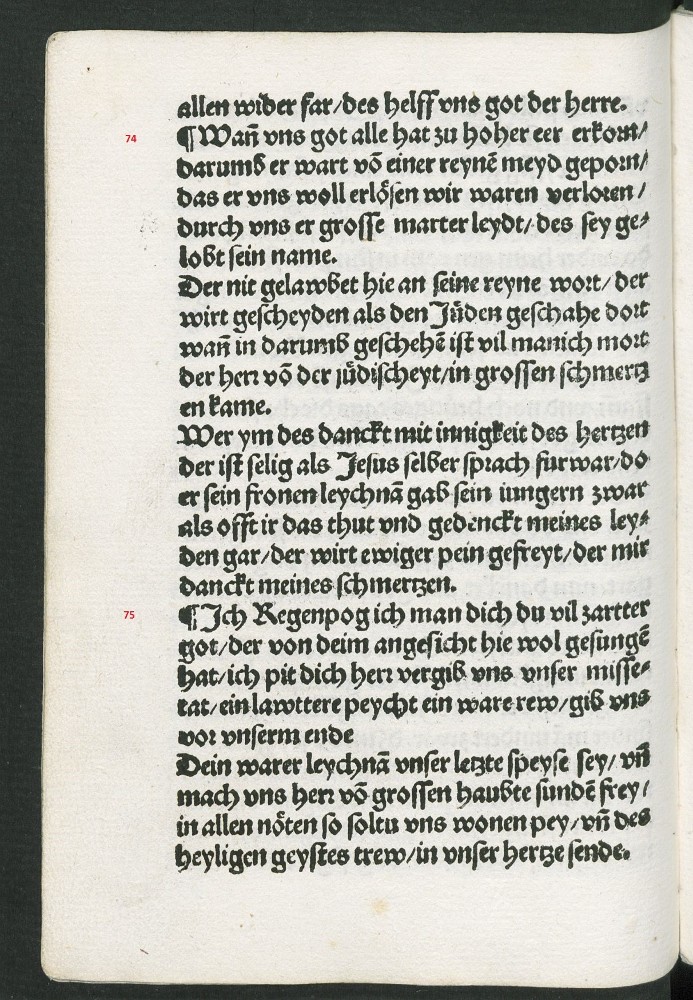 allen wider far/des helff vns got der herre.
74
¶ Wañ vns got alle hat zu hoher eer erkorn/
darumb er wart võ einer reynē meyd geporn/
das er vns woll erlösen wir waren verloren /
durch vns er grosse marter leydt/des sey ge⸗
lobt sein name.
Der nit gelawbet hie an seine reyne wort/der
wirt gescheyden als den Jüden geschahe dort
wañ in darumb geschehē ist vil manich mort
der herr võ der jüdischeyt/in grossen schmertz
en kame.
Wer ym des danckt mit innigkeit des hertzen
der ist selig als Jesus selber sprach furwar/do
er sein fronen leychnã gab sein iungern zwar
als offt ir das thut vnd gedenckt meines ley⸗
den gar/der wirt ewiger pein gefreyt/der mir
danckt meines schmertzen.
75
¶ Ich Regenpog ich man dich du vil zartter
got/der von deim angesicht hie wol gesungē
hat/ich pit dich herr vergib vns vnser misse⸗
tat/ein lawttere peycht ein ware rew/gib vns
vor vnserm ende
Dein warer leychnã vnser letzte speyse sey/vñ
mach vns herr võ grossen haubte sundē frey/
in allen nöten so soltu vns wonen pey/vñ des
heyligen geystes trew/in vnser hertze sende.